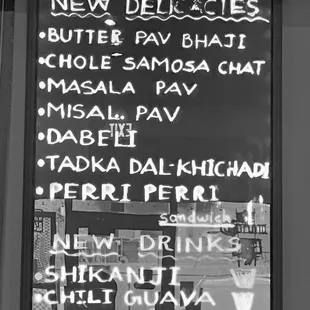 NEW DELICACIES
•BUTTER PAV BHAJI
•CHOLE SAMOSA CHAT
•MASALA PAV
•MISAL PAV
•DABELI
•TADKA DAL-KHICHADI
•PERRI PERRI
Sandwich
NEW DRINKS
•SHIKANJI
•CHILI GUAVA